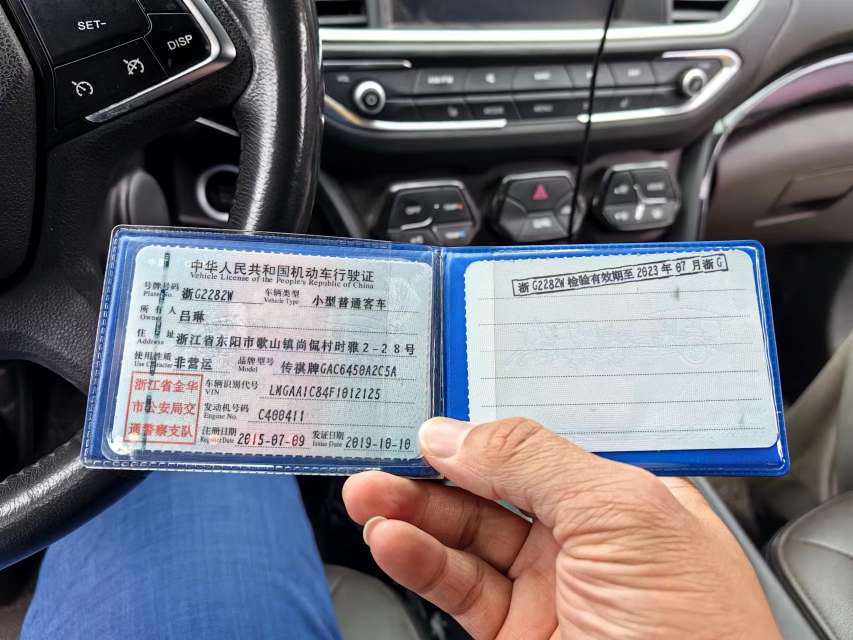 SET-
DISP
中华人民共和国机动车行驶证
Vehicle License of the People's Republic of China
号牌号码 浙G2282W 车辆类型 小型普通客车
Plate No. Vehicle Type
所有人 吕琳
Owner
住址 浙江省东阳市歌山镇尚侃村时雅2-28号
Address
使用性质 非营运 品牌型号 传祺牌GAC6450A2C5A
Use Character Model
浙江省金华
市公安局交
通警察支队
车辆识别代号 LMGAA1C84F1012125
VIN
发动机号码 C400411
Engine No.
注册日期 2015-07-09 发证日期 2019-10-10
Register Date Issue Date
浙G2282W 检验有效期至 2023年07月浙G